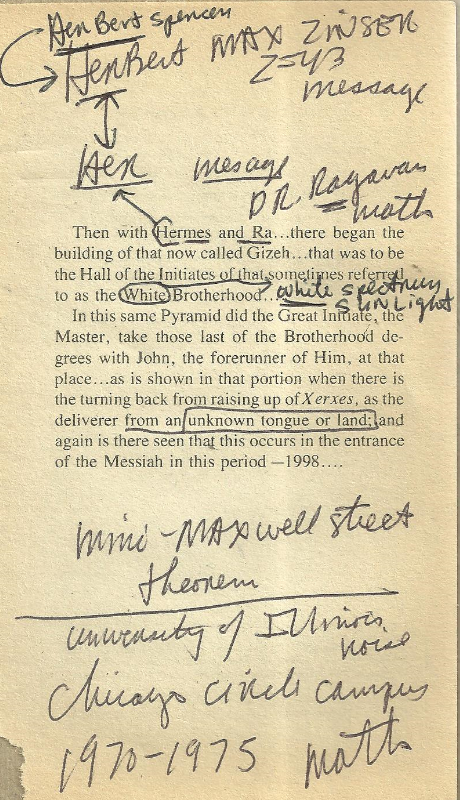 HenBert spencer
HenBert MAX ZINSER
Z=43
message
Her mesage
DR. Ragavan
math
Then with Hermes and Ra...there began the
building of that now called Gizeh...that was to be
the Hall of the Initiates of that sometimes referred
to as the White Brotherhood...
white spectrum
SUNLight
In this same Pyramid did the Great Initiate, the
Master, take those last of the Brotherhood de-
grees with John, the forerunner of Him, at that
place...as is shown in that portion when there is
the turning back from raising up of Xerxes, as the
deliverer from an unknown tongue or land; and
again is there seen that this occurs in the entrance
of the Messiah in this period —1998....
mini-MAXwell street
theorem
university of Illinois
noise
Chicago circle campus
1970-1975 math